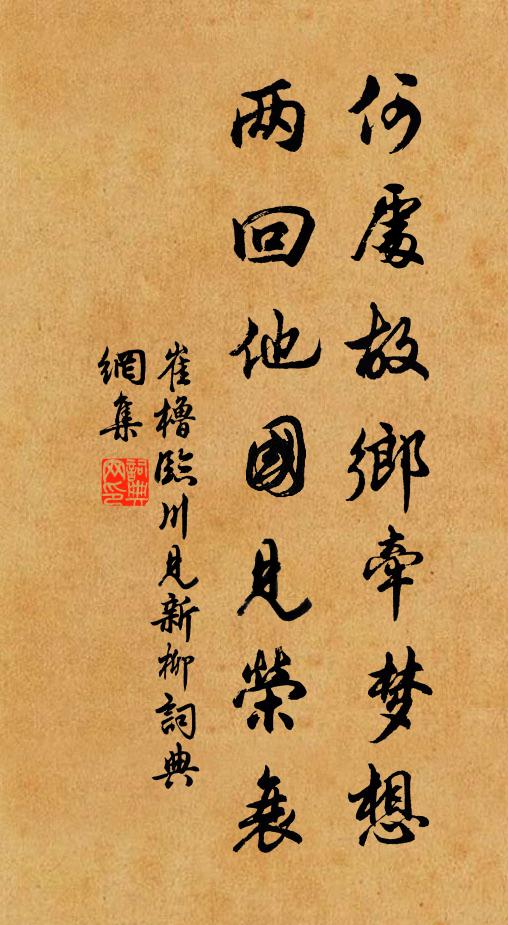 何處故鄉牽梦想
两回他國見榮衰
崔櫓臨川見新柳詞典
網集
詞典
网印